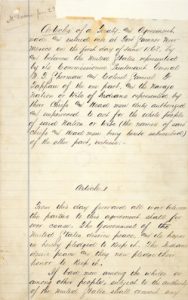 Articles of a Treaty and Agreement
made and entered into at Fort Sumner New
Mexico on the first day of June 1868, by
and between the United States represented
by its Commissioners Lieutenant General
W. T. Sherman and Colonel Samuel F.
Tappan of the one part, and the Navajo
Nation or tribe of Indians represented by
their Chiefs and Head men duly authorized
and empowered to act for the whole people
of said Nation or tribe (the names of said
Chiefs and Head men being hereto subscribed)
of the other part, witness:
Article 1
From this day forward all war between
the parties to this agreement shall for
ever cease. The Government of the
United States desires peace, and its honor
is hereby pledged to keep it. The Indians
desire peace and they now pledge their
honor to keep it.
If bad men among the whites or
among other people, subject to the authority
of the United States shall commit any